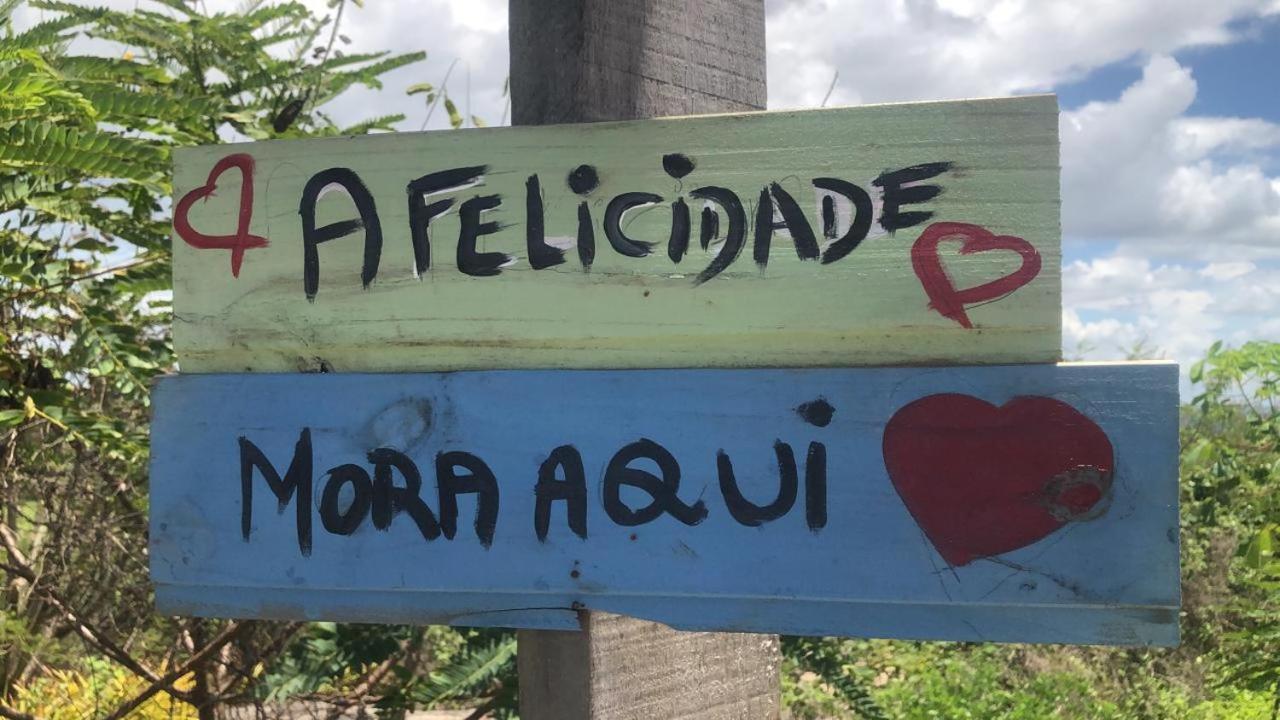 A FELICIDADE
MORA AQUI